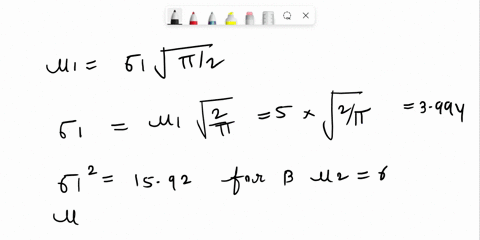 μ1 = σ1 √π/2
σ1 = μ1 √2/π = 5 × √2/π = 3.994
σ1² = 15.92 for B μ2 = 6
μ